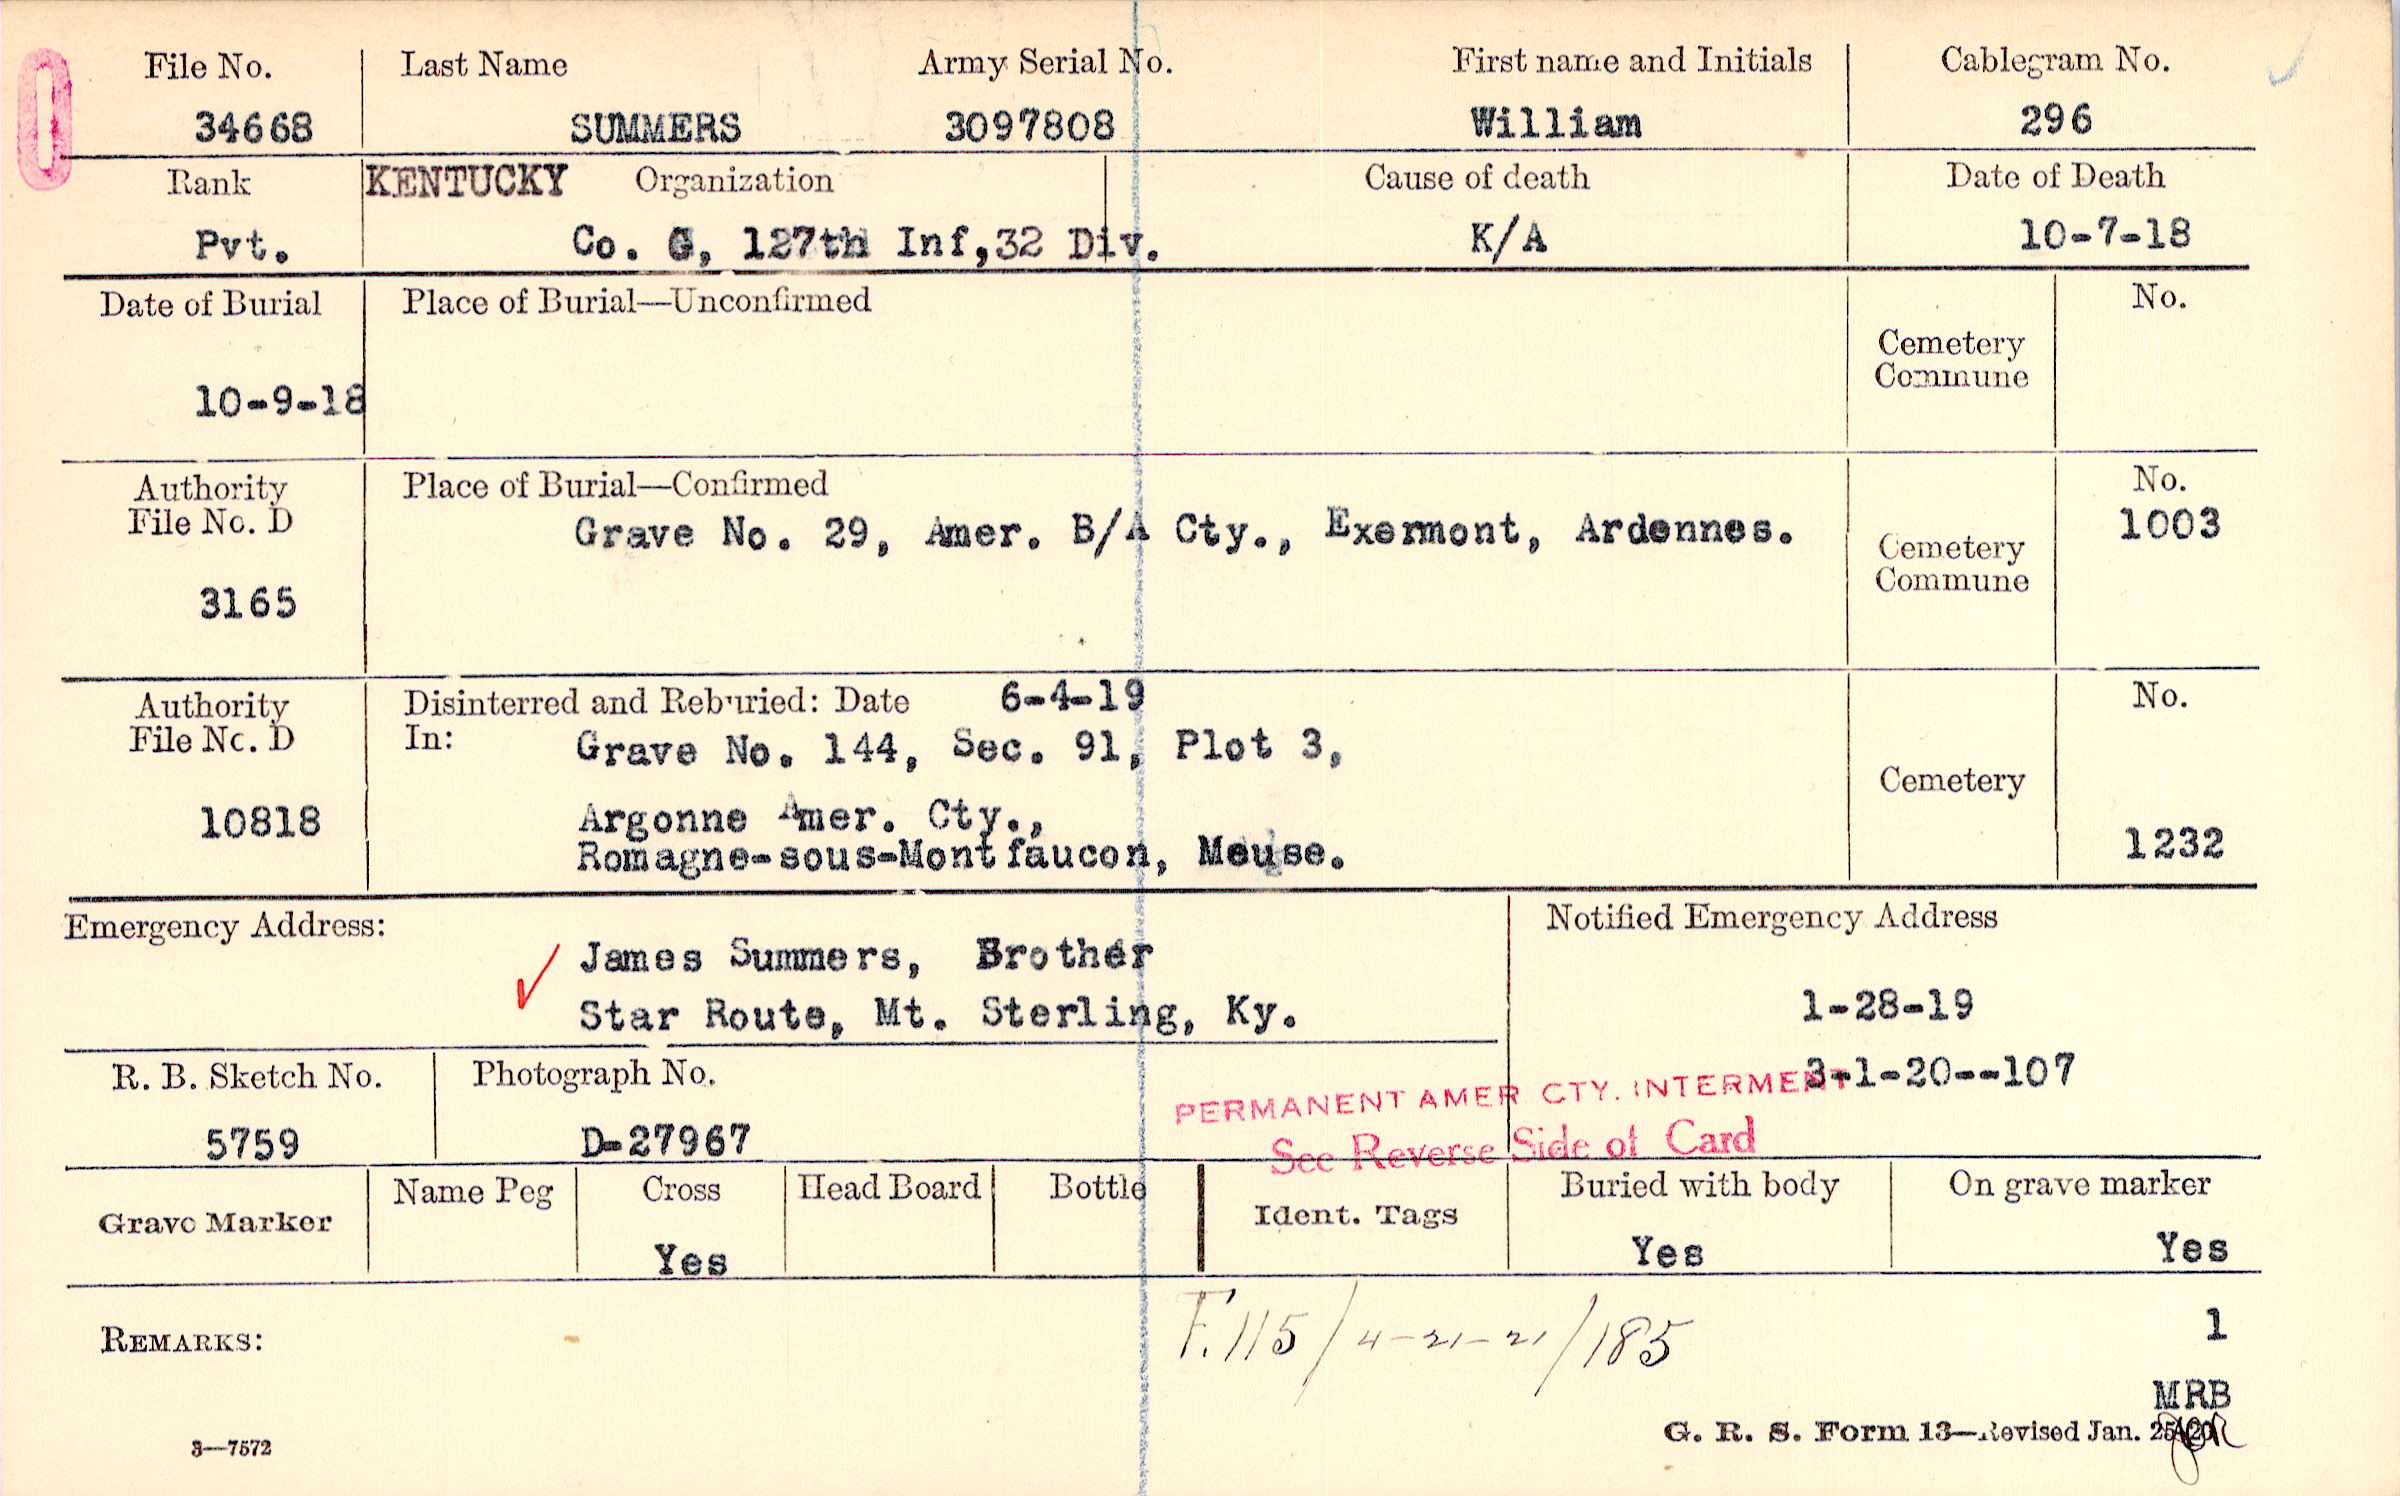 File No. Last Name Army Serial No. First name and Initials Cablegram No.
34668 SUMMERS 3097808 William 296
Rank KENTUCKY Organization Cause of death Date of Death
Pvt. Co. G, 127th Inf,32 Div. K/A 10-7-18
Date of Burial Place of Burial—Unconfirmed No.
Cemetery
Commune
10-9-18
Authority Place of Burial—Confirmed No.
File No. D Grave No. 29, Amer. B/A Cty., Exermont, Ardennes. 1003
Cemetery
Commune
3165
Authority Disinterred and Reburied: Date 6-4-19 No.
File No. D In: Grave No. 144, Sec. 91, Plot 3,
Cemetery
10818 Argonne Amer. Cty.,
Romagne-sous-Montfaucon, Meuse. 1232
Emergency Address: Notified Emergency Address
James Summers, Brother
Star Route, Mt. Sterling, Ky. 1-28-19
R. B. Sketch No. Photograph No. 3-1-20--107
PERMANENT AMER CTY. INTERMENT
5759 D-27967 See Reverse Side of Card
Grave Marker Name Peg Cross Head Board Bottle Ident. Tags Buried with body On grave marker
Yes Yes Yes
REMARKS: F.115/4-21-21/185 1
MRB
3—7572 G. R. S. Form 13—Revised Jan.